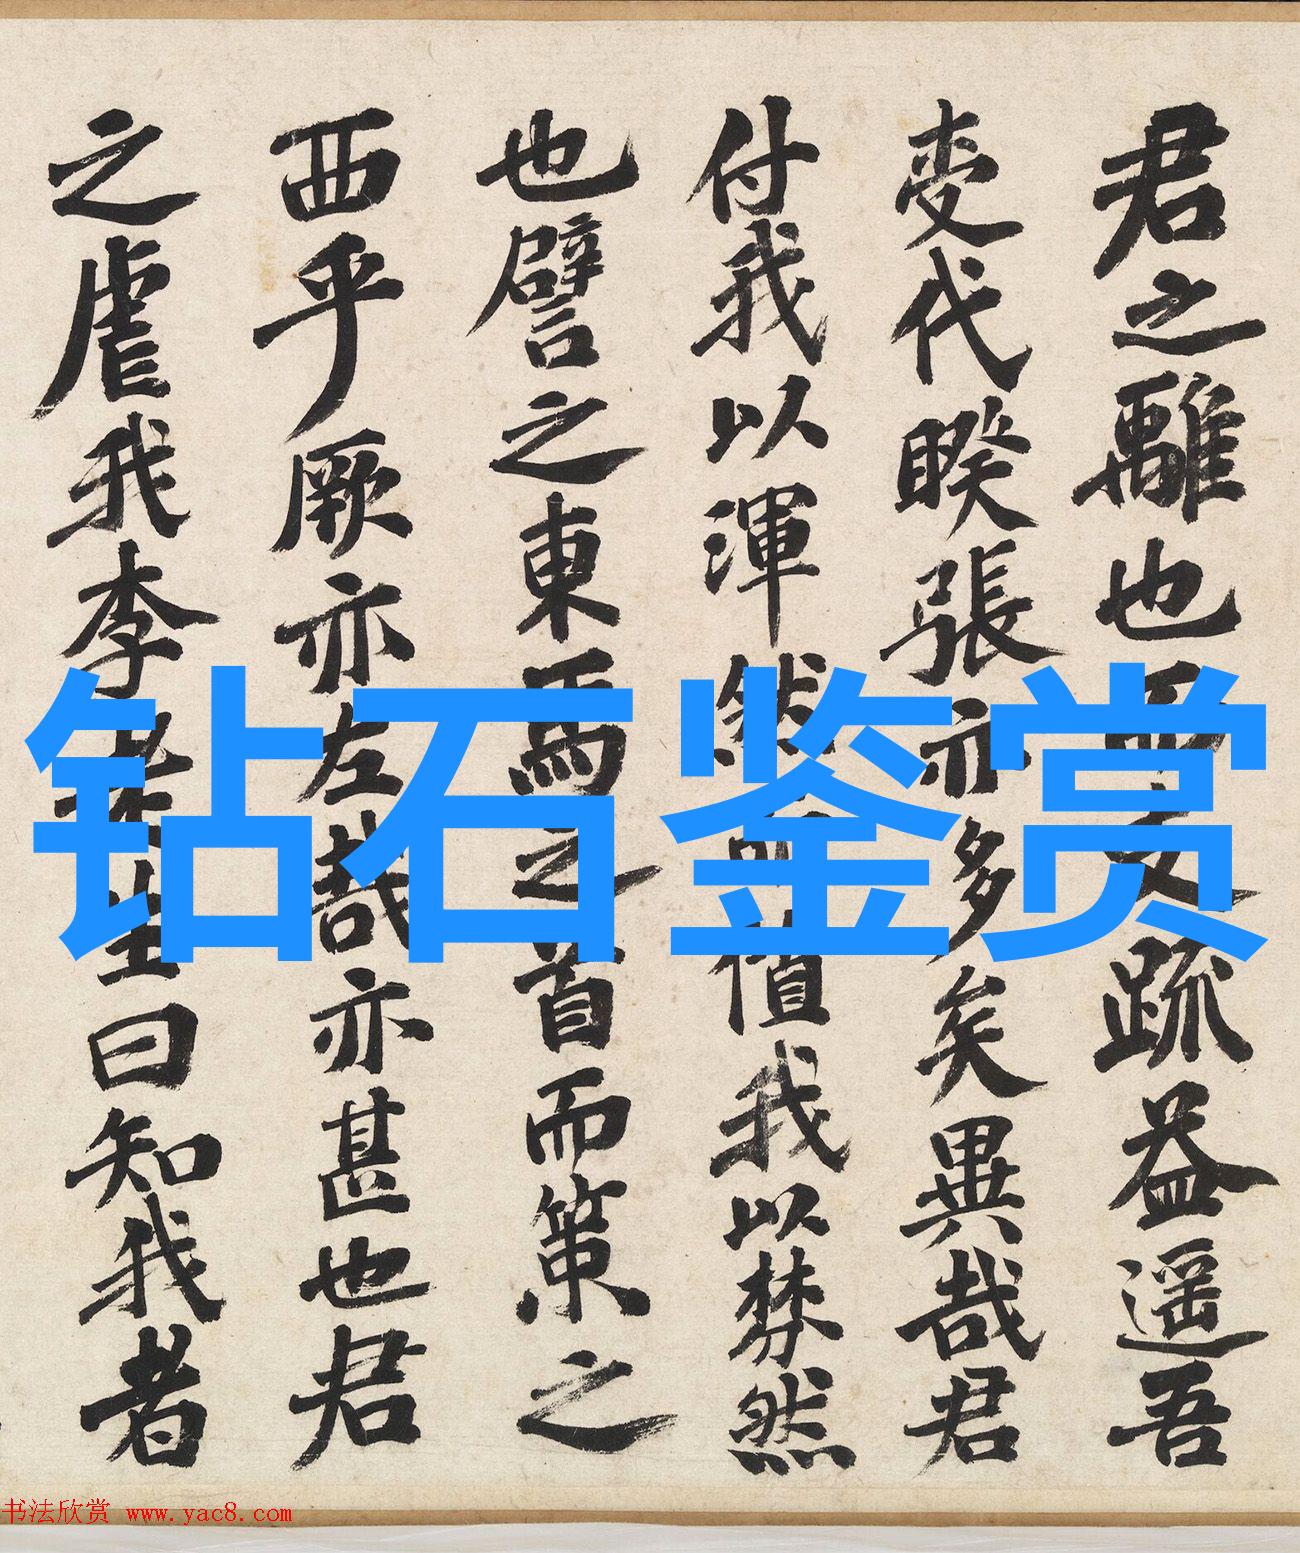 君之離也又疏益遥吾
代睽張亦多矣異哉君
付我以渾然值我以棼然
也譬之東馬之首而策之
西乎厥亦左哉亦甚也君
之虐我李老生曰知我者
钻石鉴赏
书法欣赏 www.yac8.com